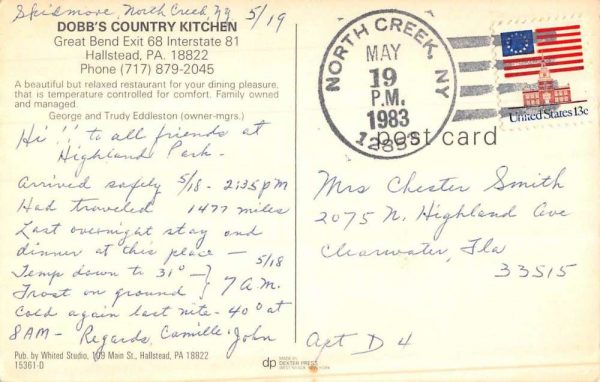 Skidmore, North Creek, Ny 5/19
DOBB'S COUNTRY KITCHEN
Great Bend Exit 68 Interstate 81
Hallstead, PA. 18822
Phone (717) 879-2045
A beautiful but relaxed restaurant for your dining pleasure,
that is temperature controlled for comfort. Family owned
and managed.
George and Trudy Eddleston (owner-mgrs.)
Hi!! to all friends at
Highland Park -
Arrived safely 5/18 - 2:35 PM
Had traveled 1477 miles
Last overnight stay and
dinner at this place - 5/18
Temp down to 31° -
Frost on ground - } 7 A.M.
Cold again last nite - 40° at
8AM - Regards, Camille - John
Pub. by Whited Studio, 109 Main St., Hallstead, PA 18822
15361-D
NORTH CREEK, NY
MAY
19
P.M.
1983
12853
United States 13c
post card
Mrs Chester Smith
2075 N. Highland Ave
Clearwater, Fla
33515
Apt D 4
dp
MADE BY
DEXTER PRESS
WEST NYACK, NEW YORK